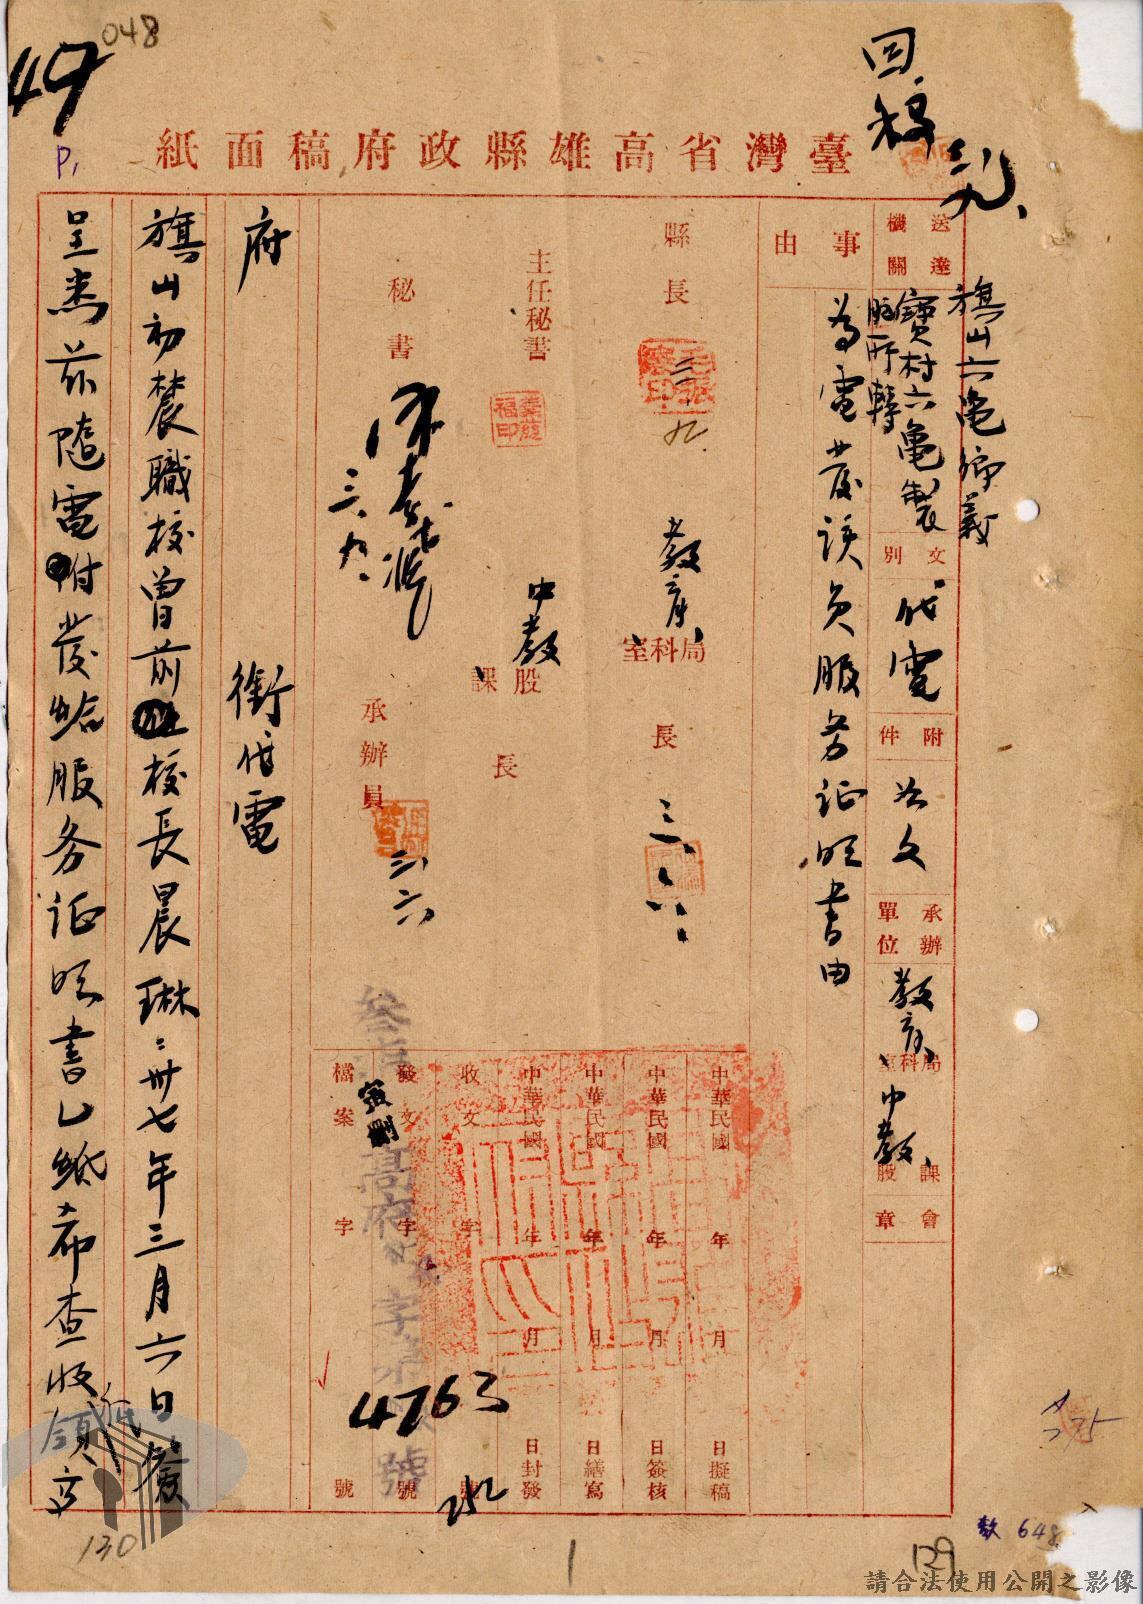 048
49
P1
回稿
臺灣省高雄縣政府稿面紙
送達機關
旗山六龜鄉義
寶村六龜製
腦所轉
文別
代電
附件
如文
承辦單位
教育
局科室
中教
課股
會章
事由
為電發該員服务证明書由
縣長
九
教育
局科室
長
三、八
主任秘書
中教
股課
長
秘書
三、九、
承辦員
三、六
中華民國 年 月 日擬稿
中華民國 年 月 日簽核
中華民國 年 月 日繕寫
中華民國 年 月 日封發
收文 字 號
發文 字 號
檔案 字 號
4763
252
府 銜代電
旗山初農職校曾前校長晨琳：卅七年三月六日簽
呈悉茲隨電附發給服务证明書乙紙希查收領高
130
1
129
教 648
請合法使用公開之影像